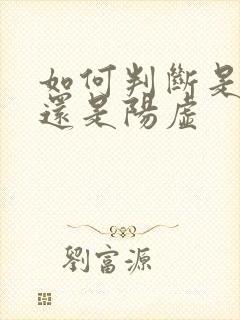 如何判斷是
還是陽虛
劉富源